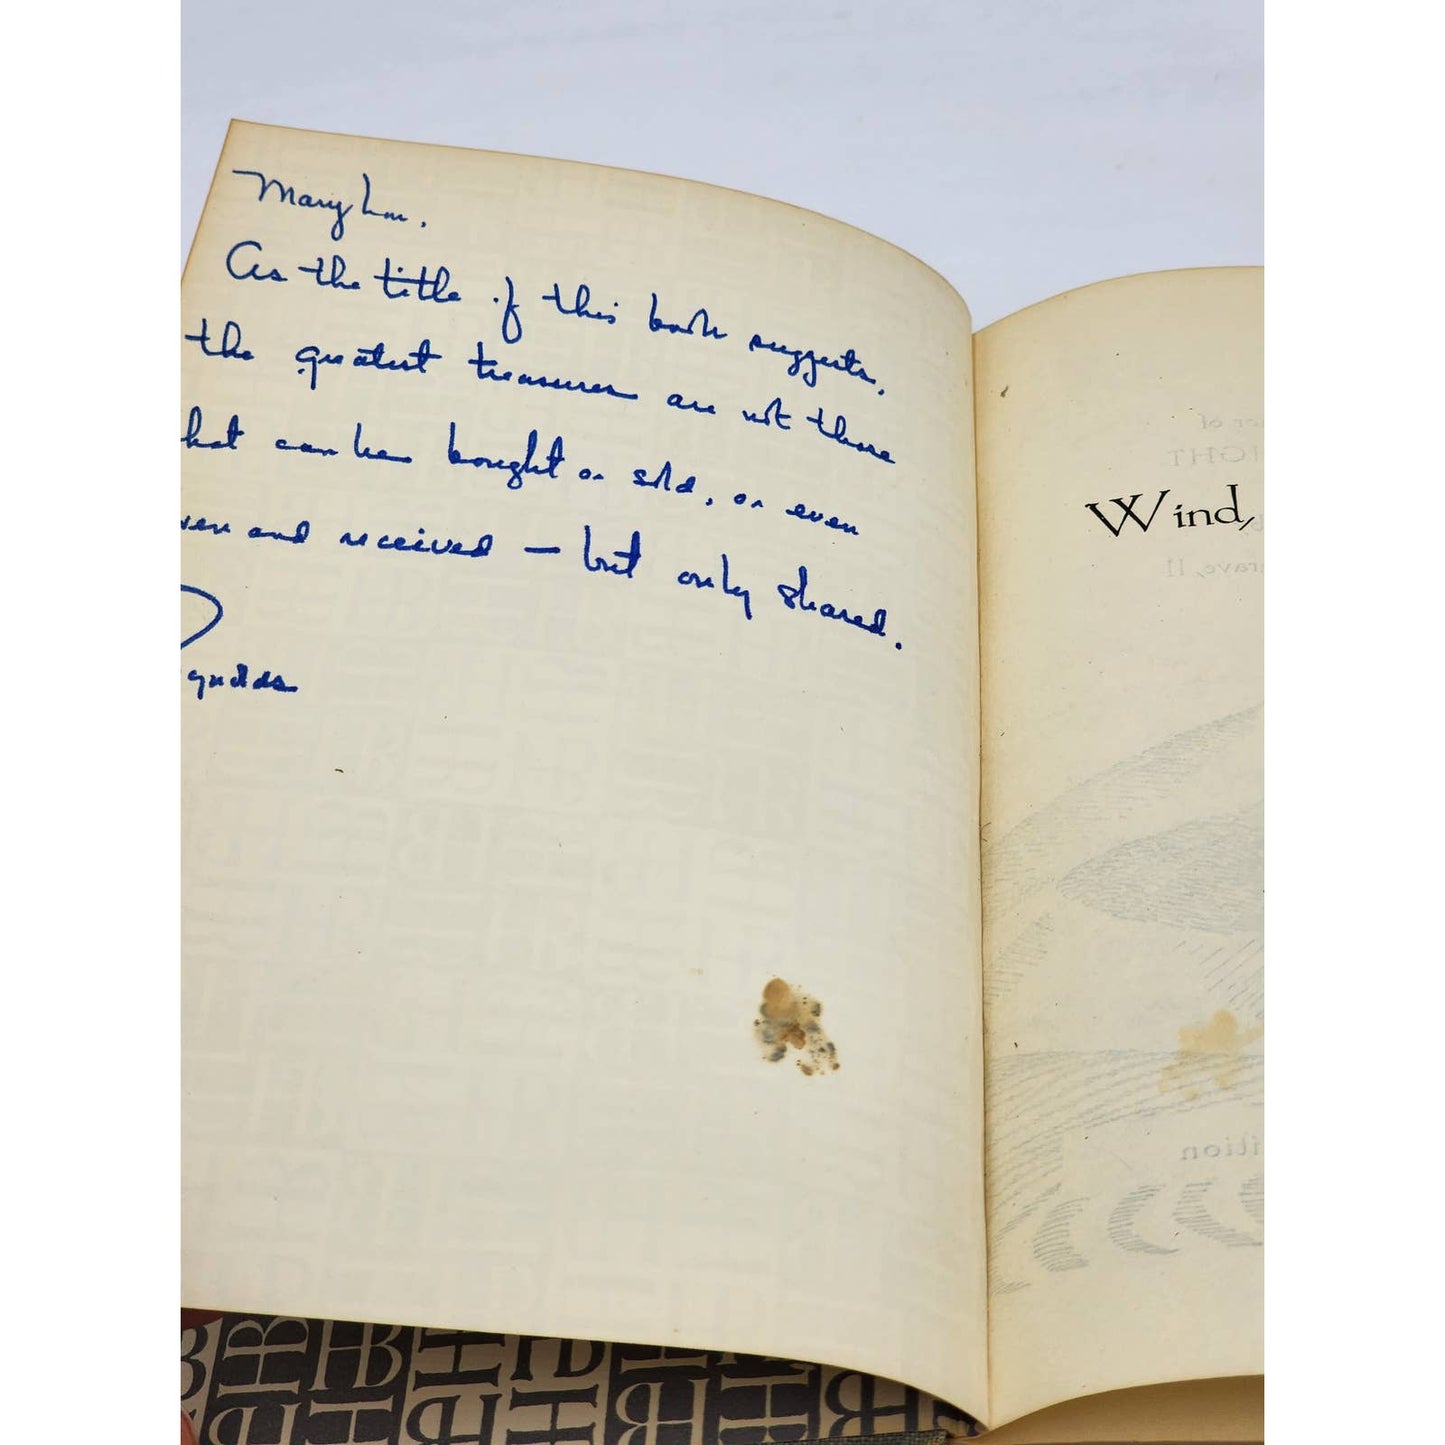 Mary Lou,
As the title of this book suggests,
the greatest treasures are not those
hat can be bought or sold, or even
ven and received — but only shared.
ynolds
Wind,
er of
IGHT
rave, II
ition